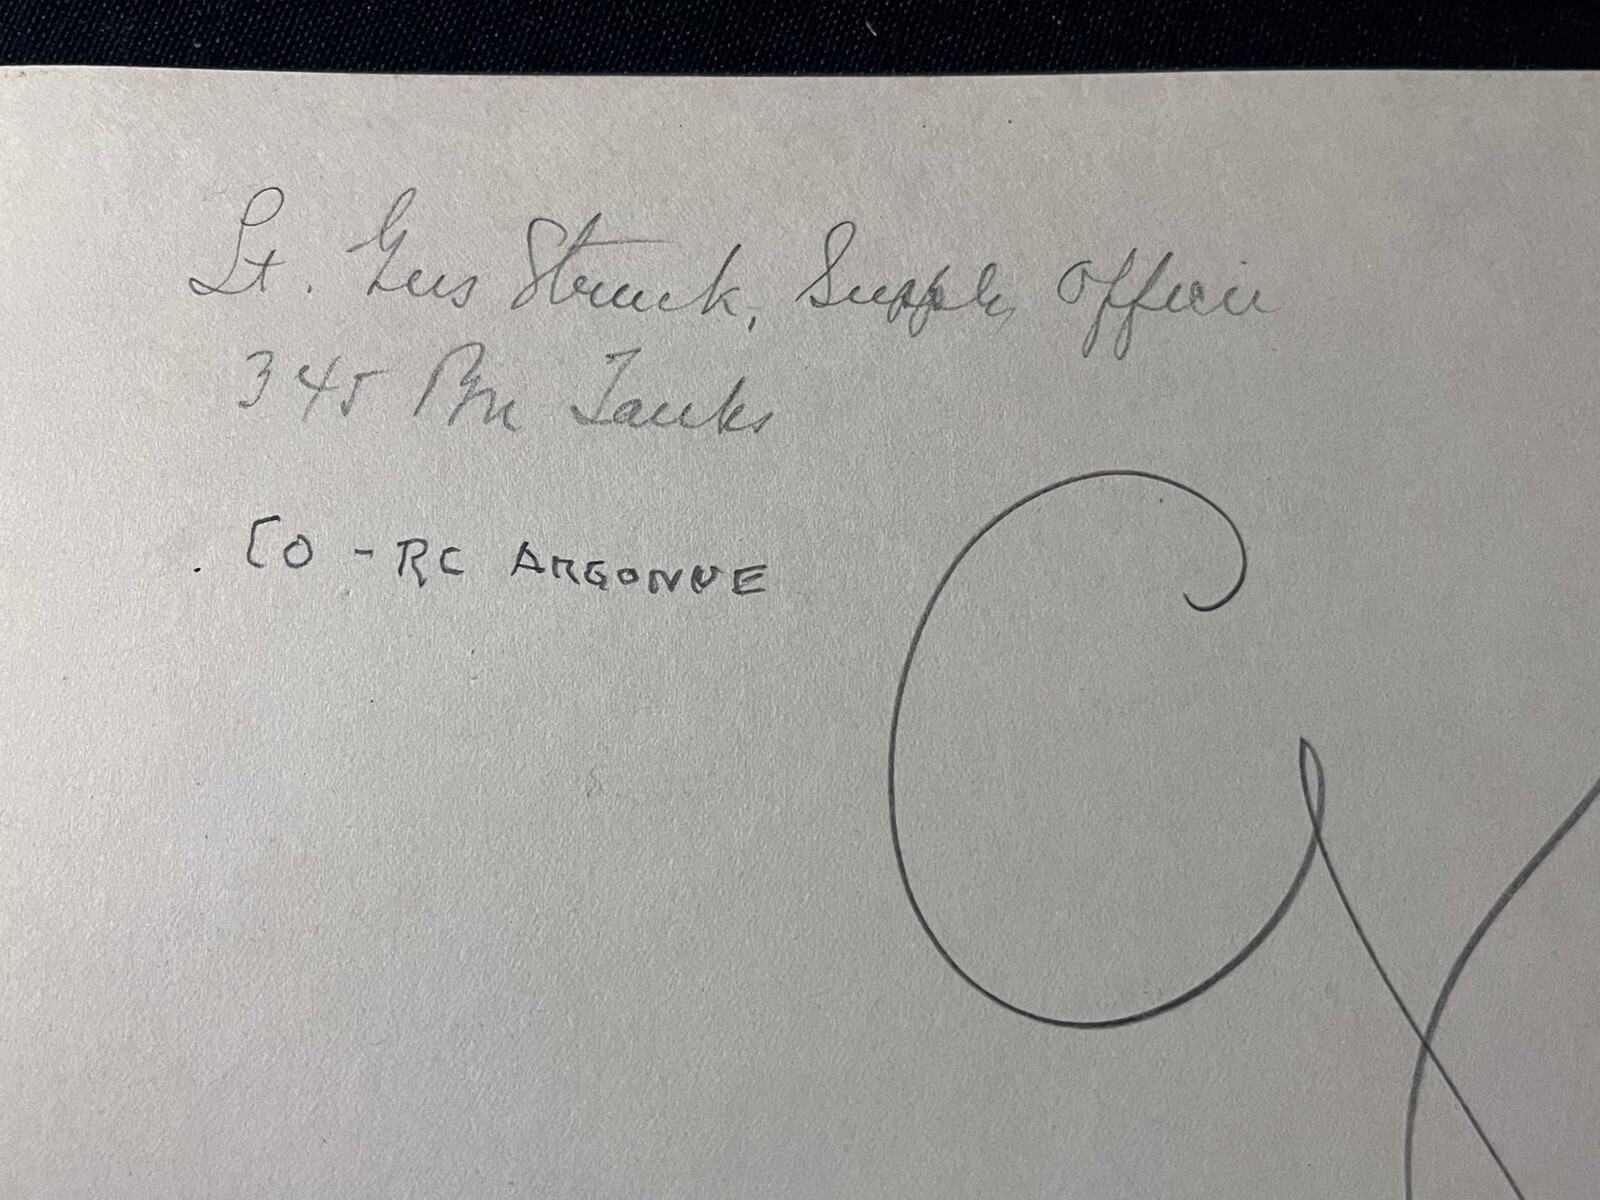 Lt. Gus Struck, Supply Officer
345 Bn Tanks
CO - RC ARGONNE